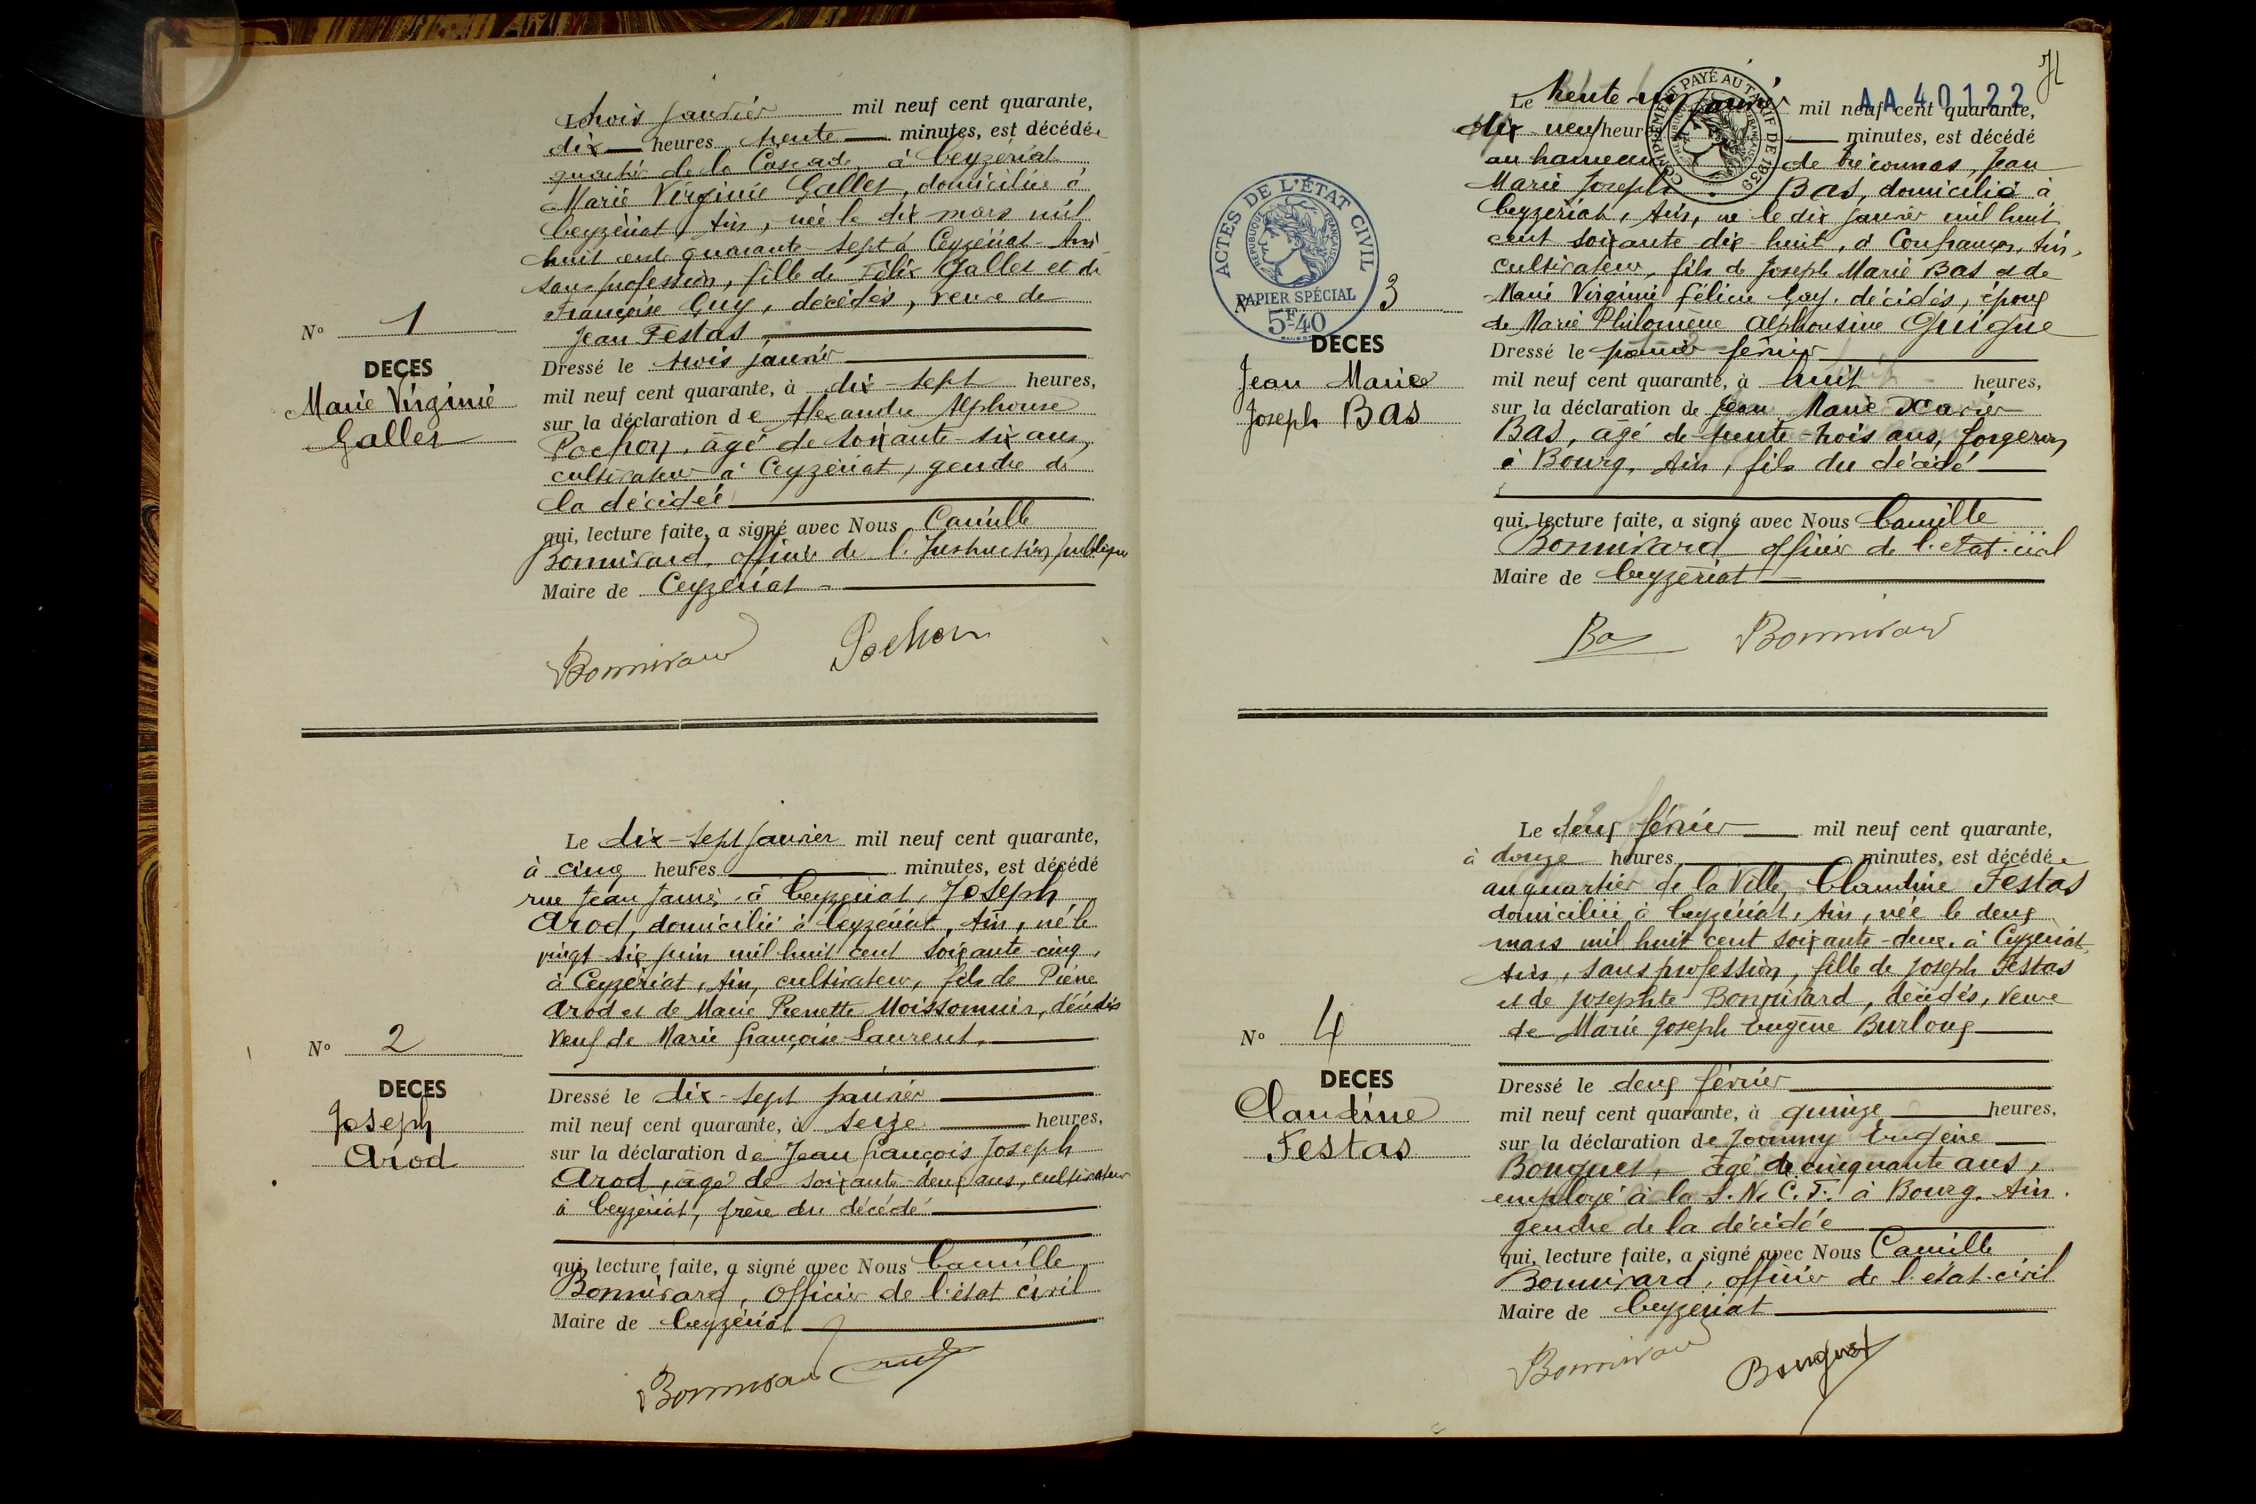 Le trois janvier mil neuf cent quarante,
dix heures trente minutes, est décédée
quartier de la Cascade, à Ceyzériat
Marie Virginie Gallet, domiciliée à
Ceyzériat, Ain, née le dix mars mil
huit cent quarante-sept à Ceyzériat-Ain
sans profession, fille de Félix Gallet et de
Françoise Guy, décédés, veuve de
Jean Festas
N° 1
DECES
Marie Virginie
Gallet
Dressé le trois janvier
mil neuf cent quarante, à dix-sept heures,
sur la déclaration de Alexandre Alphonse
Pochon, âgé de soixante-six ans,
cultivateur à Ceyzériat, gendre de
la décédée
qui, lecture faite, a signé avec Nous Camille
Bonnivard, officier de l'Instruction publique
Maire de Ceyzériat
Bonnivard Pochon
Le dix-sept janvier mil neuf cent quarante,
à cinq heures minutes, est décédé
rue Jean Jaurès, à Ceyzériat, Joseph
Arod, domicilié à Ceyzériat, Ain, né le
vingt-six juin mil huit cent soixante-cinq,
à Ceyzériat, Ain, cultivateur, fils de Pierre
Arod et de Marie Pierrette Moissonnier, décédés
veuf de Marie françoise Laurent,
N° 2
DECES
Joseph
Arod
Dressé le dix-sept janvier
mil neuf cent quarante, à seize heures,
sur la déclaration de Jean françois Joseph
Arod, âgé de soixante-deux ans, cultivateur
à Ceyzériat, frère du décédé
qui, lecture faite, a signé avec Nous Camille
Bonnivard, Officier de l'état civil
Maire de Ceyzériat
Bonnivard
AA 40122
COMPLÉMENT PAYÉ AU TARIF DE 1939
Le trente-un janvier mil neuf cent quarante,
dix-neuf heures minutes, est décédé
au hameau de Tréconnas, Jean
Marie Joseph BAS, domicilié à
Ceyzériat, Ain, né le dix janvier mil huit
cent soixante dix-huit, à Confrançon, Ain,
cultivateur, fils de Joseph Marie BAS et de
Marie Virginie Félicie Gay, décédés, époux
de Marie Philomène Alphonsine Guigue
ACTES DE L'ÉTAT CIVIL
RÉPUBLIQUE FRANÇAISE
PAPIER SPÉCIAL
5F40
3
DECES
Jean Marie
Joseph BAS
Dressé le premier février
mil neuf cent quarante, à huit heures,
sur la déclaration de Jean Marie Xavier
BAS, âgé de trente-trois ans, forgeron
à Bourg, Ain, fils du décédé
qui, lecture faite, a signé avec Nous Camille
Bonnivard officier de l'etat-civil
Maire de Ceyzériat
Bas Bonnivard
Le deux février mil neuf cent quarante,
à douze heures, minutes, est décédée
au quartier de la Ville, Claudine Festas
domiciliée à Ceyzériat, Ain, née le deux
mars mil huit cent soixante-deux, à Ceyzériat,
Ain, sans profession, fille de Joseph Festas
et de Josephte Bonnivard, décédés, veuve
de Marie Joseph Eugène Burloug
N° 4
DECES
Claudine
Festas
Dressé le deux février
mil neuf cent quarante, à quinze heures,
sur la déclaration de Joanny Eugène
Bouquet, âgé de cinquante ans,
employé à la S.N.C.F. à Bourg, Ain.
gendre de la décédée
qui, lecture faite, a signé avec Nous Camille
Bonnivard, officier de l'état-civil
Maire de Ceyzériat
Bonnivard Bouquet